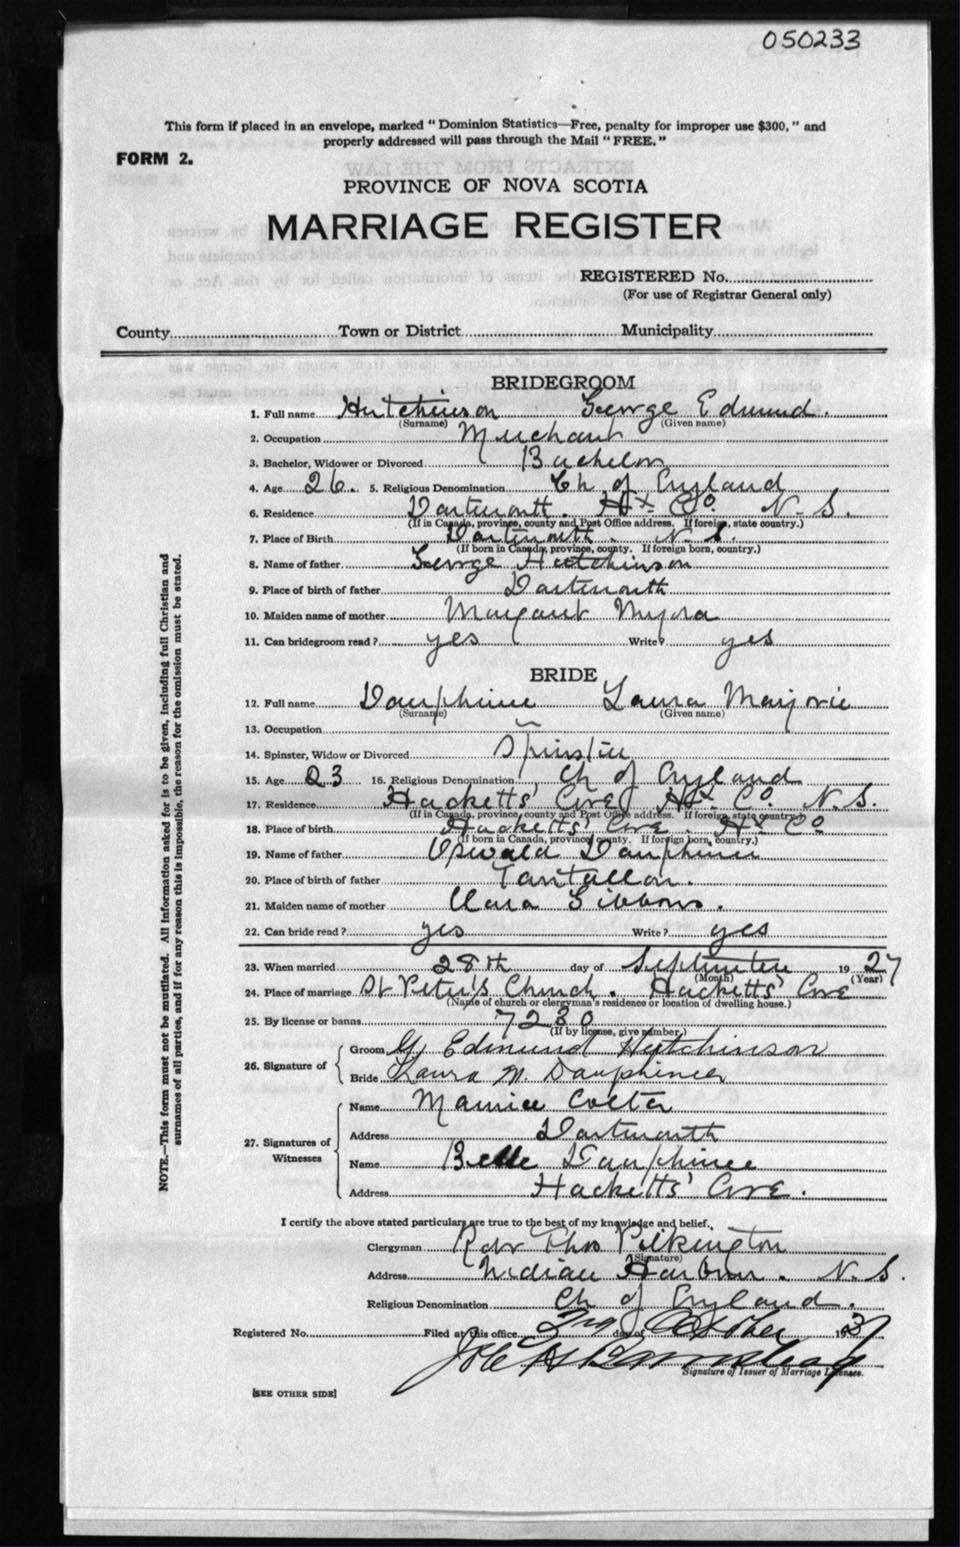 050233
This form if placed in an envelope, marked "Dominion Statistics—Free, penalty for improper use $300," and
properly addressed will pass through the Mail "FREE."
FORM 2.
PROVINCE OF NOVA SCOTIA
MARRIAGE REGISTER
REGISTERED No.
(For use of Registrar General only)
County Town or District Municipality
BRIDEGROOM
1. Full name Hutchinson George Edmund.
(Surname) (Given name)
2. Occupation Merchant
3. Bachelor, Widower or Divorced Bachelor
4. Age 26. 5. Religious Denomination Ch of England
6. Residence Dartmouth. Hx Co. N. S.
(If in Canada, province, county and Post Office address. If foreign, state country.)
7. Place of Birth Dartmouth. N. S.
(If born in Canada, province, county. If foreign born, country.)
8. Name of father George Hutchinson
9. Place of birth of father Dartmouth
10. Maiden name of mother Margaret Myra
11. Can bridegroom read? yes Write? yes
BRIDE
12. Full name Dauphinee Laura Marjorie
(Surname) (Given name)
13. Occupation
14. Spinster, Widow or Divorced Spinster
15. Age 23 16. Religious Denomination Ch of England
17. Residence Hacketts' Cove Hx. Co. N. S.
(If in Canada, province, county and Post Office address. If foreign, state country.)
18. Place of birth Hacketts' Cove. Hx Co
(If born in Canada, province, county. If foreign born, country.)
19. Name of father Oswald Dauphinee
20. Place of birth of father Tantallon.
21. Maiden name of mother Clara Gibbons.
22. Can bride read? yes Write? yes
23. When married 28th day of September 1927
(Month) (Year)
24. Place of marriage St Peter's Church. Hacketts' Cove
(Name of church or clergyman's residence or location of dwelling house.)
25. By license or banns 7230
(If by license, give number.)
26. Signature of
Groom G. Edmund Hutchinson
Bride Laura M. Dauphinee
27. Signatures of Witnesses
Name Maurice Colter
Address Dartmouth
Name Belle Dauphinee
Address Hacketts' Cove.
I certify the above stated particulars are true to the best of my knowledge and belief.
Clergyman Rev Thos Pilkington
(Signature)
Address Indian Harbour. N. S.
Religious Denomination Ch of England.
Registered No. Filed at this office day of October 19
Signature of Issuer of Marriage Licenses.
[SEE OTHER SIDE]
NOTE.—This form must not be mutilated. All information asked for is to be given, including full Christian and
surnames of all parties, and if for any reason this is impossible, the reason for the omission must be stated.